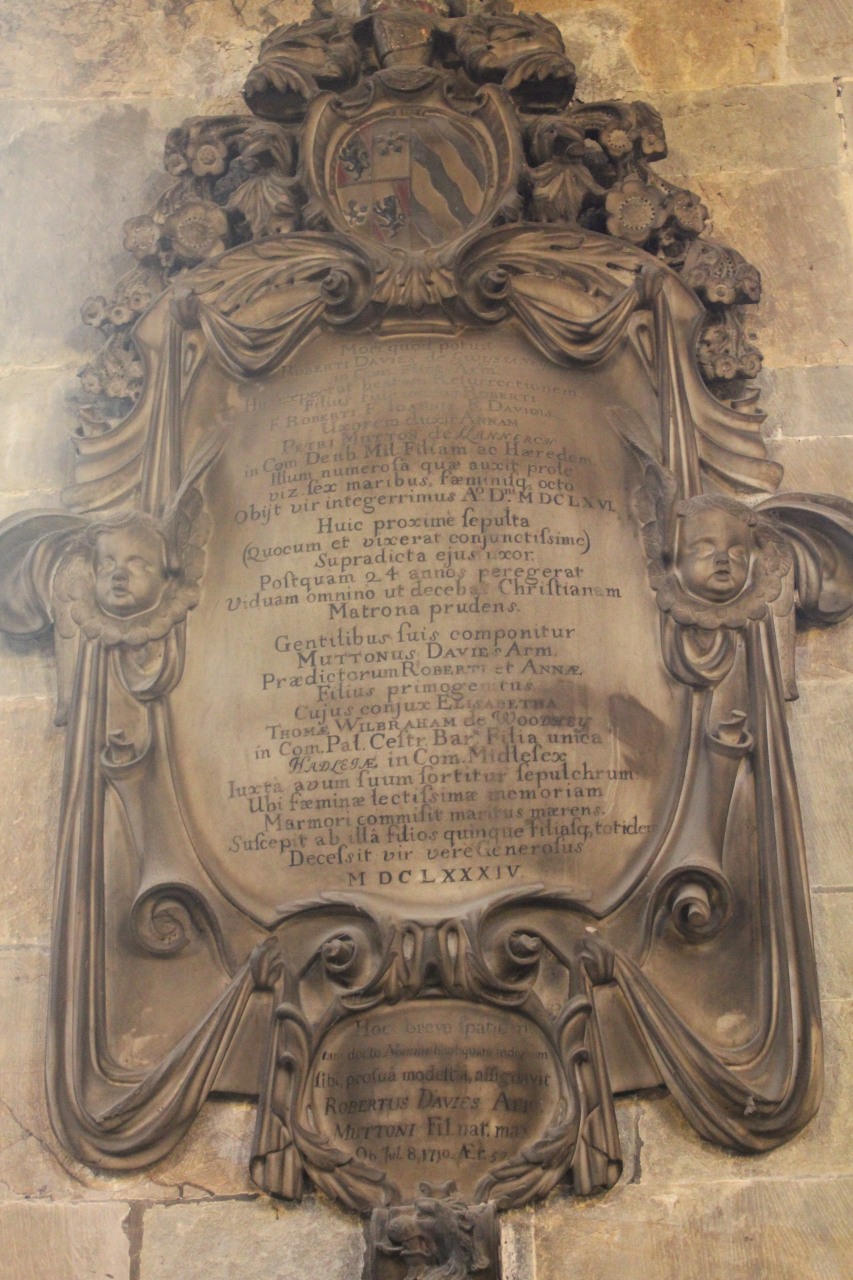 Mors quod potuit
ROBERTI DAVIES de
Hic expectat beatam Resurrectionem
Filius ROBERTI
F. ROBERTI F. IOANNIS F. DAVIDIS
Uxorem duxit ANNAM
PETRI MUTTON de LLANNERCH
in Com Denb Mil. Filiam ac Hæredem
Illum numerosâ quæ auxit prole
viz. sex maribus, fæminisq, octo
Obijt vir integerrimus Aº.D.ni MDCLXVI.
Huic proximè sepulta
(Quocum et vixerat conjunctissime)
Supradicta ejus uxor.
Postquam 24 annos peregerat
viduam omnino ut decebat Christianam
Matrona prudens.
Gentilibus suis componitur
MUTTONUS DAVIES Arm.
Prædictorum ROBERTI et ANNÆ
Filius primogenitus
Cujus conjux ELISABETHA
THOMÆ WILBRAHAM de WOODHEY
in Com. Pal. Cestr. Bar. Filia unica
HADLEIÆ in Com. Midlesex
Iuxta avum suum sortitur sepulchrum
Ubi fæminæ lectissimæ memoriam
Marmori commisit maritus mærens.
Suscepit ab illâ filios quinque filiasq, totidem
Decessit vir vere Generosus
MDCLXXXIV
Hoc breve spatium
tam docto
sibi, prosuâ modestiâ, assignavit
ROBERTUS DAVIES
MUTTONI Fil. nat. max
Ob Jul. 8, 1710. Æt. 52